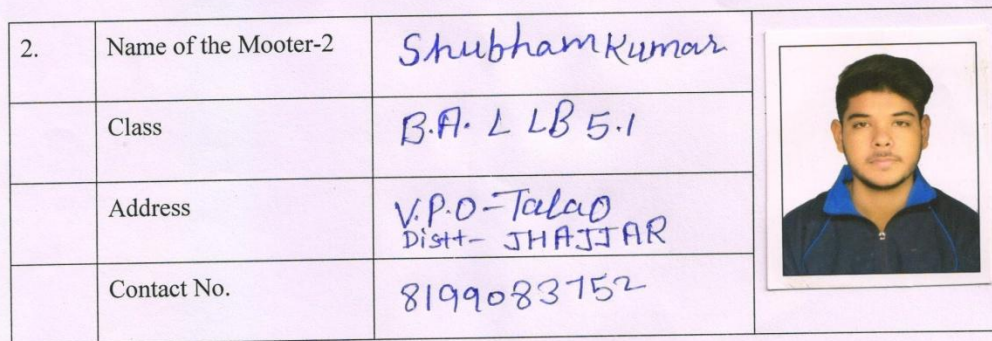 2. Name of the Mooter-2 Shubham Kumar
Class B.A. L LB 5.1
Address V.P.O-Talao
Distt- JHAJJAR
Contact No. 8199083752